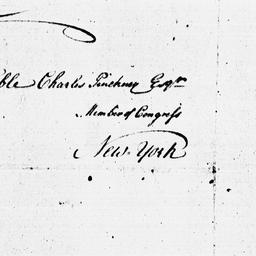 ble Charles Pinckney Esqr.
Member of Congress
New York